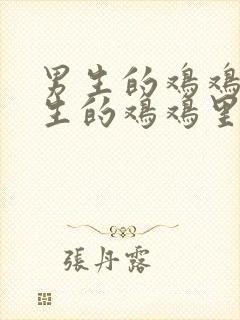 男生的鸡鸡
生的鸡鸡里
張丹露